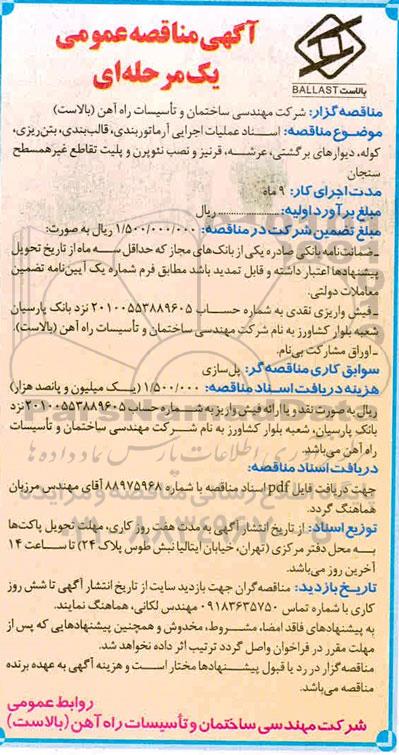 آگهی مناقصه عمومی
یک مرحله‌ای
بالاست
BALLAST
مناقصه گزار: شرکت مهندسی ساختمان و تأسیسات راه آهن (بالاست)
موضوع مناقصه: اسناد عملیات اجرایی آرماتوربندی، قالب‌بندی، بتن‌ریزی،
کوله، دیوارهای برگشتی، عرشه، قرنیز و نصب نئوپرن و پلیت تقاطع غیرهمسطح
سنجان
مدت اجرای کار: ۹ ماه
مبلغ برآورد اولیه: .................... ریال
مبلغ تضمین شرکت در مناقصه: ۱/۵۰۰/۰۰۰/۰۰۰ ریال به صورت:
ـ ضمانت‌نامه بانکی صادره یکی از بانک‌های مجاز که حداقل سه ماه از تاریخ تحویل
پیشنهادها اعتبار داشته و قابل تمدید باشد مطابق فرم شماره یک آیین‌نامه تضمین
معاملات دولتی.
ـ فیش واریزی نقدی به شماره حساب ۲۰۱۰۰۵۵۳۸۸۹۶۰۵ نزد بانک پارسیان
شعبه بلوار کشاورز به نام شرکت مهندسی ساختمان و تأسیسات راه آهن (بالاست).
ـ اوراق مشارکت بی‌نام.
سوابق کاری مناقصه‌گر: پل‌سازی
هزینه دریافت اسناد مناقصه: ۱/۵۰۰/۰۰۰ (یک میلیون و پانصد هزار)
ریال به صورت نقد و با ارائه فیش واریز به شماره حساب ۲۰۱۰۰۵۵۳۸۸۹۶۰۵ نزد
بانک پارسیان، شعبه بلوار کشاورز به نام شرکت مهندسی ساختمان و تأسیسات
راه آهن می‌باشد.
دریافت اسناد مناقصه:
جهت دریافت فایل pdf اسناد مناقصه با شماره ۸۸۹۷۵۹۶۸ آقای مهندس مرزبان
هماهنگ گردد.
توزیع اسناد: از تاریخ انتشار آگهی به مدت هفت روز کاری، مهلت تحویل پاکت‌ها
به محل دفتر مرکزی (تهران، خیابان ایتالیا نبش طوس پلاک ۲۴) تا ساعت ۱۴
آخرین روز می‌باشد.
تاریخ بازدید: مناقصه‌گران جهت بازدید سایت از تاریخ انتشار آگهی تا شش روز
کاری با شماره تماس ۰۹۱۸۳۶۳۵۷۵۰ مهندس لکانی، هماهنگ نمایند.
به پیشنهادهای فاقد امضا، مشروط، مخدوش و همچنین پیشنهادهایی که پس از
مهلت مقرر در فراخوان واصل گردد ترتیب اثر داده نخواهد شد.
مناقصه‌گزار در رد یا قبول پیشنهادها مختار است و هزینه آگهی به عهده برنده
مناقصه می‌باشد.
روابط عمومی
شرکت مهندسی ساختمان و تأسیسات راه آهن (بالاست)